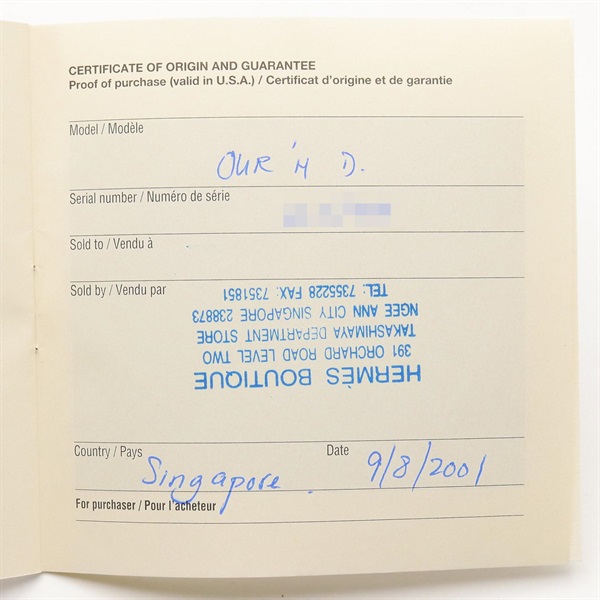 CERTIFICATE OF ORIGIN AND GUARANTEE
Proof of purchase (valid in U.S.A.) / Certificat d'origine et de garantie
Model / Modèle
OUR 'H D.
Serial number / Numéro de série
Sold to / Vendu à
Sold by / Vendu par
HERMÈS BOUTIQUE
391 ORCHARD ROAD LEVEL TWO
TAKASHIMAYA DEPARTMENT STORE
NGEE ANN CITY SINGAPORE 238873
TEL: 7355228 FAX: 7351851
Country / Pays Singapore. Date 9/8/2001
For purchaser / Pour l'acheteur